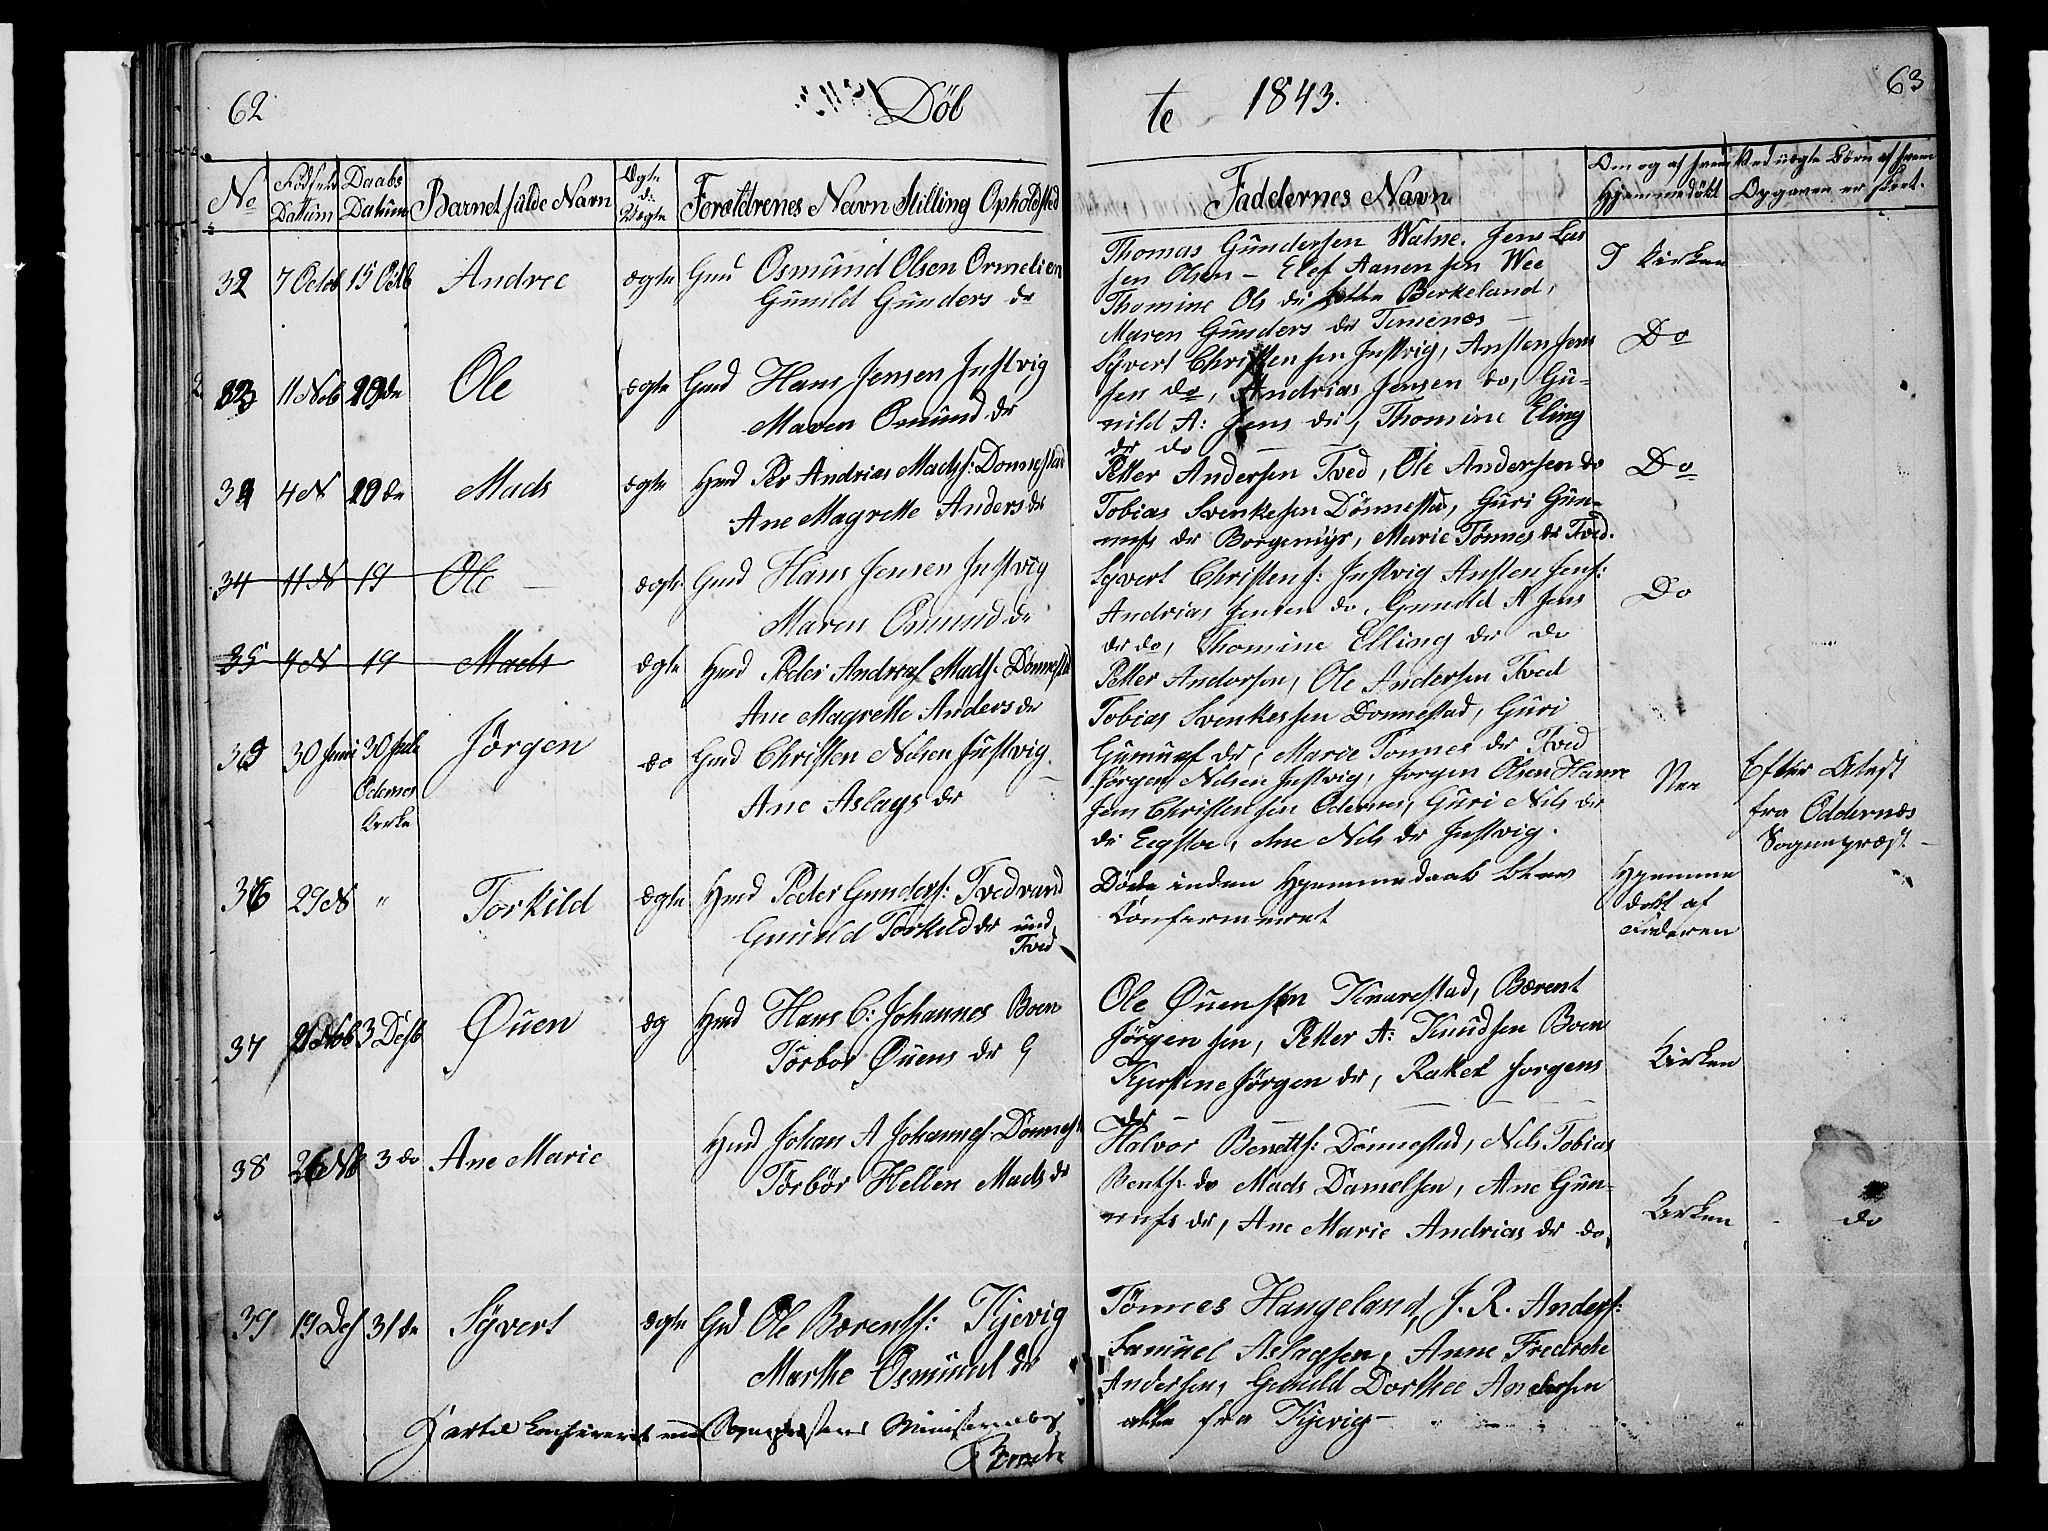 62
Döb
te 1843.
63
No
Födsels Datum
Daabs Datum
Barnets fulde Navn
Ægte el: Uægte
Foræltdrenes Navn Stilling Opholdsted
Faddernes Navn
Om og af hvem Hjemmedöbt
Ved uægte Börn af hvem Opgaven er skeet.
32 7 Octob 15 Octb Andree ægte Gmd Osmund Olsen Ormelien
Gunild Gunders dr
Thomas Gundersen Watne. Jens Las
sen Olsen - Elef Aanensen Wee
Thomine Ols dr Berkeland,
Maren Gunders dr Timenæs -
I Kirken
33 11 Nob 19 de Ole ægte Gmd Hans Jensen Justvig
Maren Osmund dr
Syvert Christensen Justvig, Austen Jens
sen do, Andrias Jensen do, Gu-
nild A: Jens dr, Thomine Eling
dr do
Do
34 4 N 19 de Mads ægte Hmd Per Andrias Madss: Donnestad
Ane Magrette Anders dr
Petter Andersen Tved, Ole Andersen do
Tobias Svenkesen Dönnestad, Guri Gun-
nufs dr Borgemyr, Marie Tönnes dr Tved.
Do
34 11 N 19 Ole - ægte Gmd Hans Jensen Justvig
Maren Osmund dr
Syvert Christens: Justvig Austen Jens:
Andrias Jensen do, Gunild A Jens
dr do, Thomine Elling dr do
Do
35 4 N 19 Mads ægte Hmd Peder Andreas Mads: Dönnestad
Ane Magrette Anders dr
Petter Andersen, Ole Andersen Tved
Tobias Svenkessen Donnestad, Guri
Gunnuf dr, Marie Tönnes dr Tved
35 30 Juni 30 Juli Jörgen do Gmd Christen Nilsen Justvig.
Odernes Kirke
Ane Aslags dr
Jörgen Nilsen Justvig, Jorgen Olsen Hamre
Jens Christensen Odernes, Guri Nils dr
dr Eegstoe, Ane Nils dr Justvig.
Nee
Efter Atest
fra Oddernæs
Sognepræst -
36 29 N " Torkild ægte Hmd Peder Gunders: Tvedvand
Gunild Torkild dr und
Tved
Döde inden Hjemmedaab blev
Konfermeret
Hjemme
döbt af
Faderen
37 21 Nob 3 Desb Øuen æg Hmd Hans C: Johannes Boen
Torbor Øuens dr
Ole Øuensen Knarestad, Bærent
Jörgensen, Petter A: Knudsen Boen
Kjerstine Jörgen dr, Rakel Jorgens
dr
Kirken
38 26 Nb 3 do Ane Marie Hmd Johan A Johannes Dönnest
Torbör Hellen Mads dr
Halvor Bentss: Dönnestad, Nils Tobias
Bentss do Mads Danielsen, Ane Gun-
nufs dr, Ane Marie Andrias dr do.
Kirken
do
39 19 Des 31 de Syvert ægte Gmd Ole Bærentss: Kjevig
Marthe Osmund dr
Tönnes Hangeland, J. R. Anders:
Samuel Aslagsen, Anne Fredrike
Andersen, Gunild Dorthee Andersen
alle fra Kjevig -
Hertil konfereret med Sognepræstens Ministerialbog